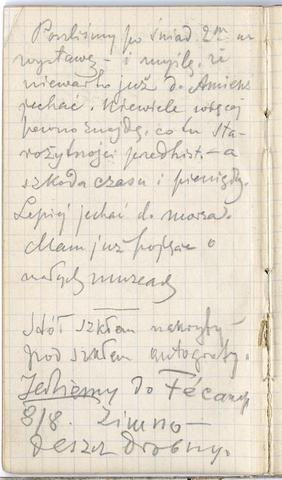 Poszliśmy po śniad. 2m na
wystawę – i myślę, że
niewarto już do Amiens
jechać. Niewiele więcej
pewno znajdę, co tu sta-
rożytności predhist. – a
szkoda czasu i pieniędzy.
Lepiej jechać do morza.
Mam już pojęcie o
małych muzeach
stół szkłem nakryty –
pod szkłem autografy.
Jedziemy do Fécamp
8/8. Zimno –
deszcz drobny.